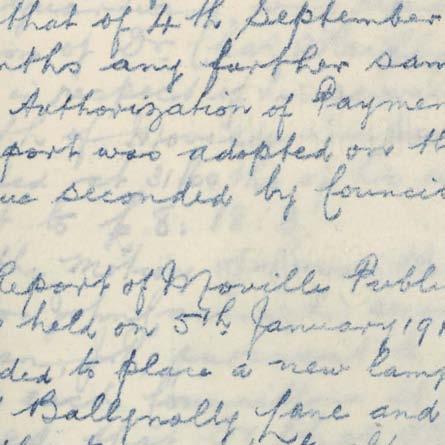 that of 4th September
nths any further sam
Authorization of Paymen
port was adopted on th
ue seconded by Counci
Report of Moville Publi
held on 5th January 191
ded to place a new lamp
Ballynally Lane and